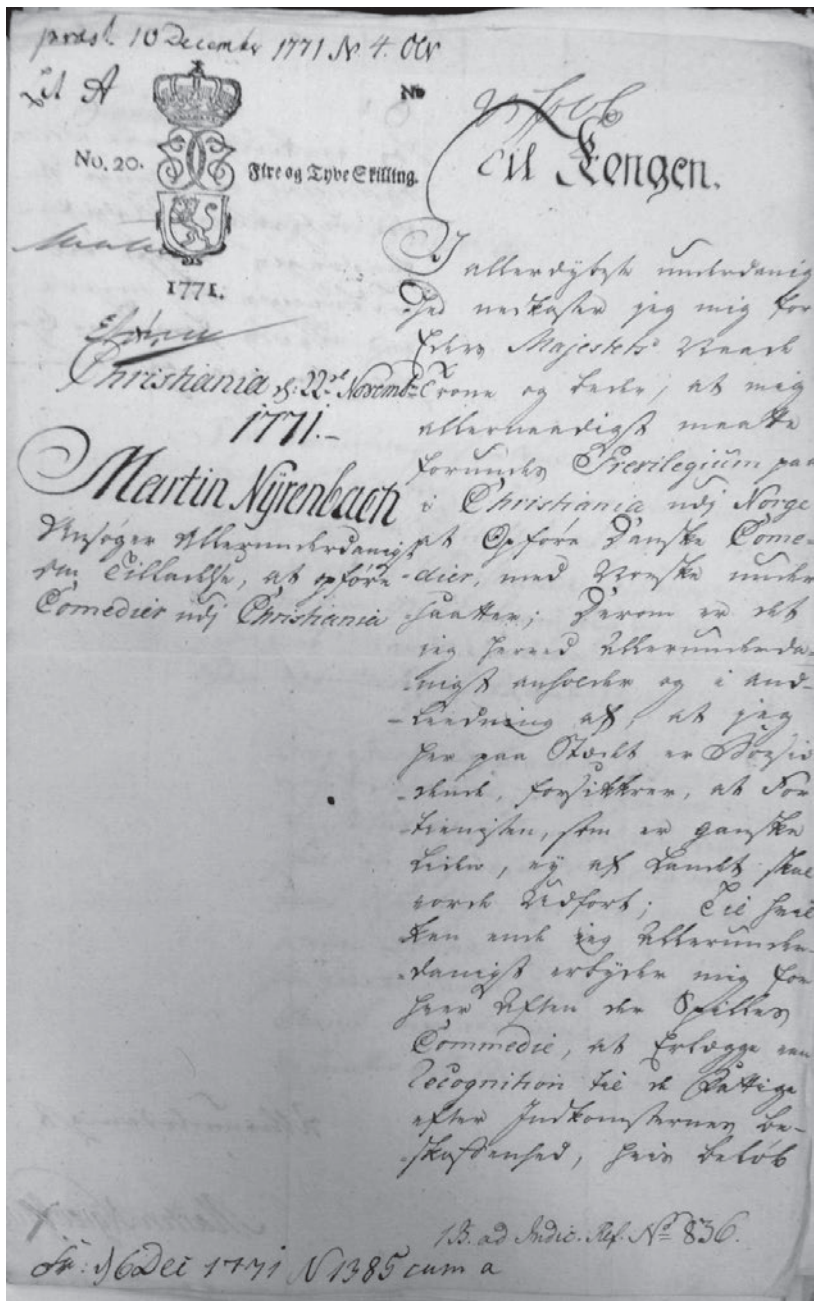 præst. 10 December 1771 N 4.
Lit A
No
No. 20.
Fire og Tyve Skilling.
1771.
Til Kongen.
Christiania d: 22de Novembr
1771.-
Martin Nÿrenbach
Ansøger Allerunderdanigst
om Tilladelse, at opføre
Comedier udj Christiania
I allerdybeste underdanig
hed nedkaster jeg mig for
Eders Majestets Naade
Trone og beder, at mig
allernaadigst maatte
forundes Previlegium paa
i Christiania udj Norge
at Opføre Danske Come-
-dier, med Norske under
-saatter; Derom er det
jeg herved Allerunderda-
-nigst anholder og i And-
-leedning af, at jeg
her paa Stædet er Boesid
-dende, forsikkrer, at For
-tienesten, som er ganske
liden, ey af Landet skal
vorde Udført; Til hvil
ken ende jeg Allerunder-
-danigst erbyder mig for
hver Aften der Spilles
Commedie, at Erlægge een
Recognition til de Fattige
efter Indkomsternes be-
-skaffenhed, hvis beløb
13. ad Indic. Ref. No 836.
16 Dec 1771 N 1385 cum a